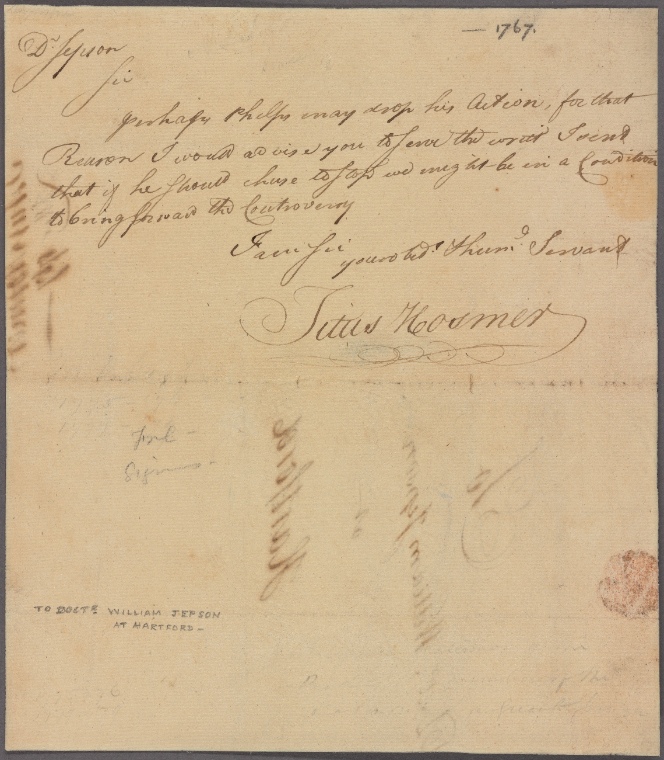 — 1767.
Dr Jepson
Sir
perhaps Phelps may drop his Action, for that
Reason I would advise you to serve the writ I send
that if he should chuse to stop we might be in a Condition
to bring forward the Controversy
I am Sir
your obedt. & humo. Servant
Titus Hosmer
TO DOCTR WILLIAM JEPSON
AT HARTFORD —